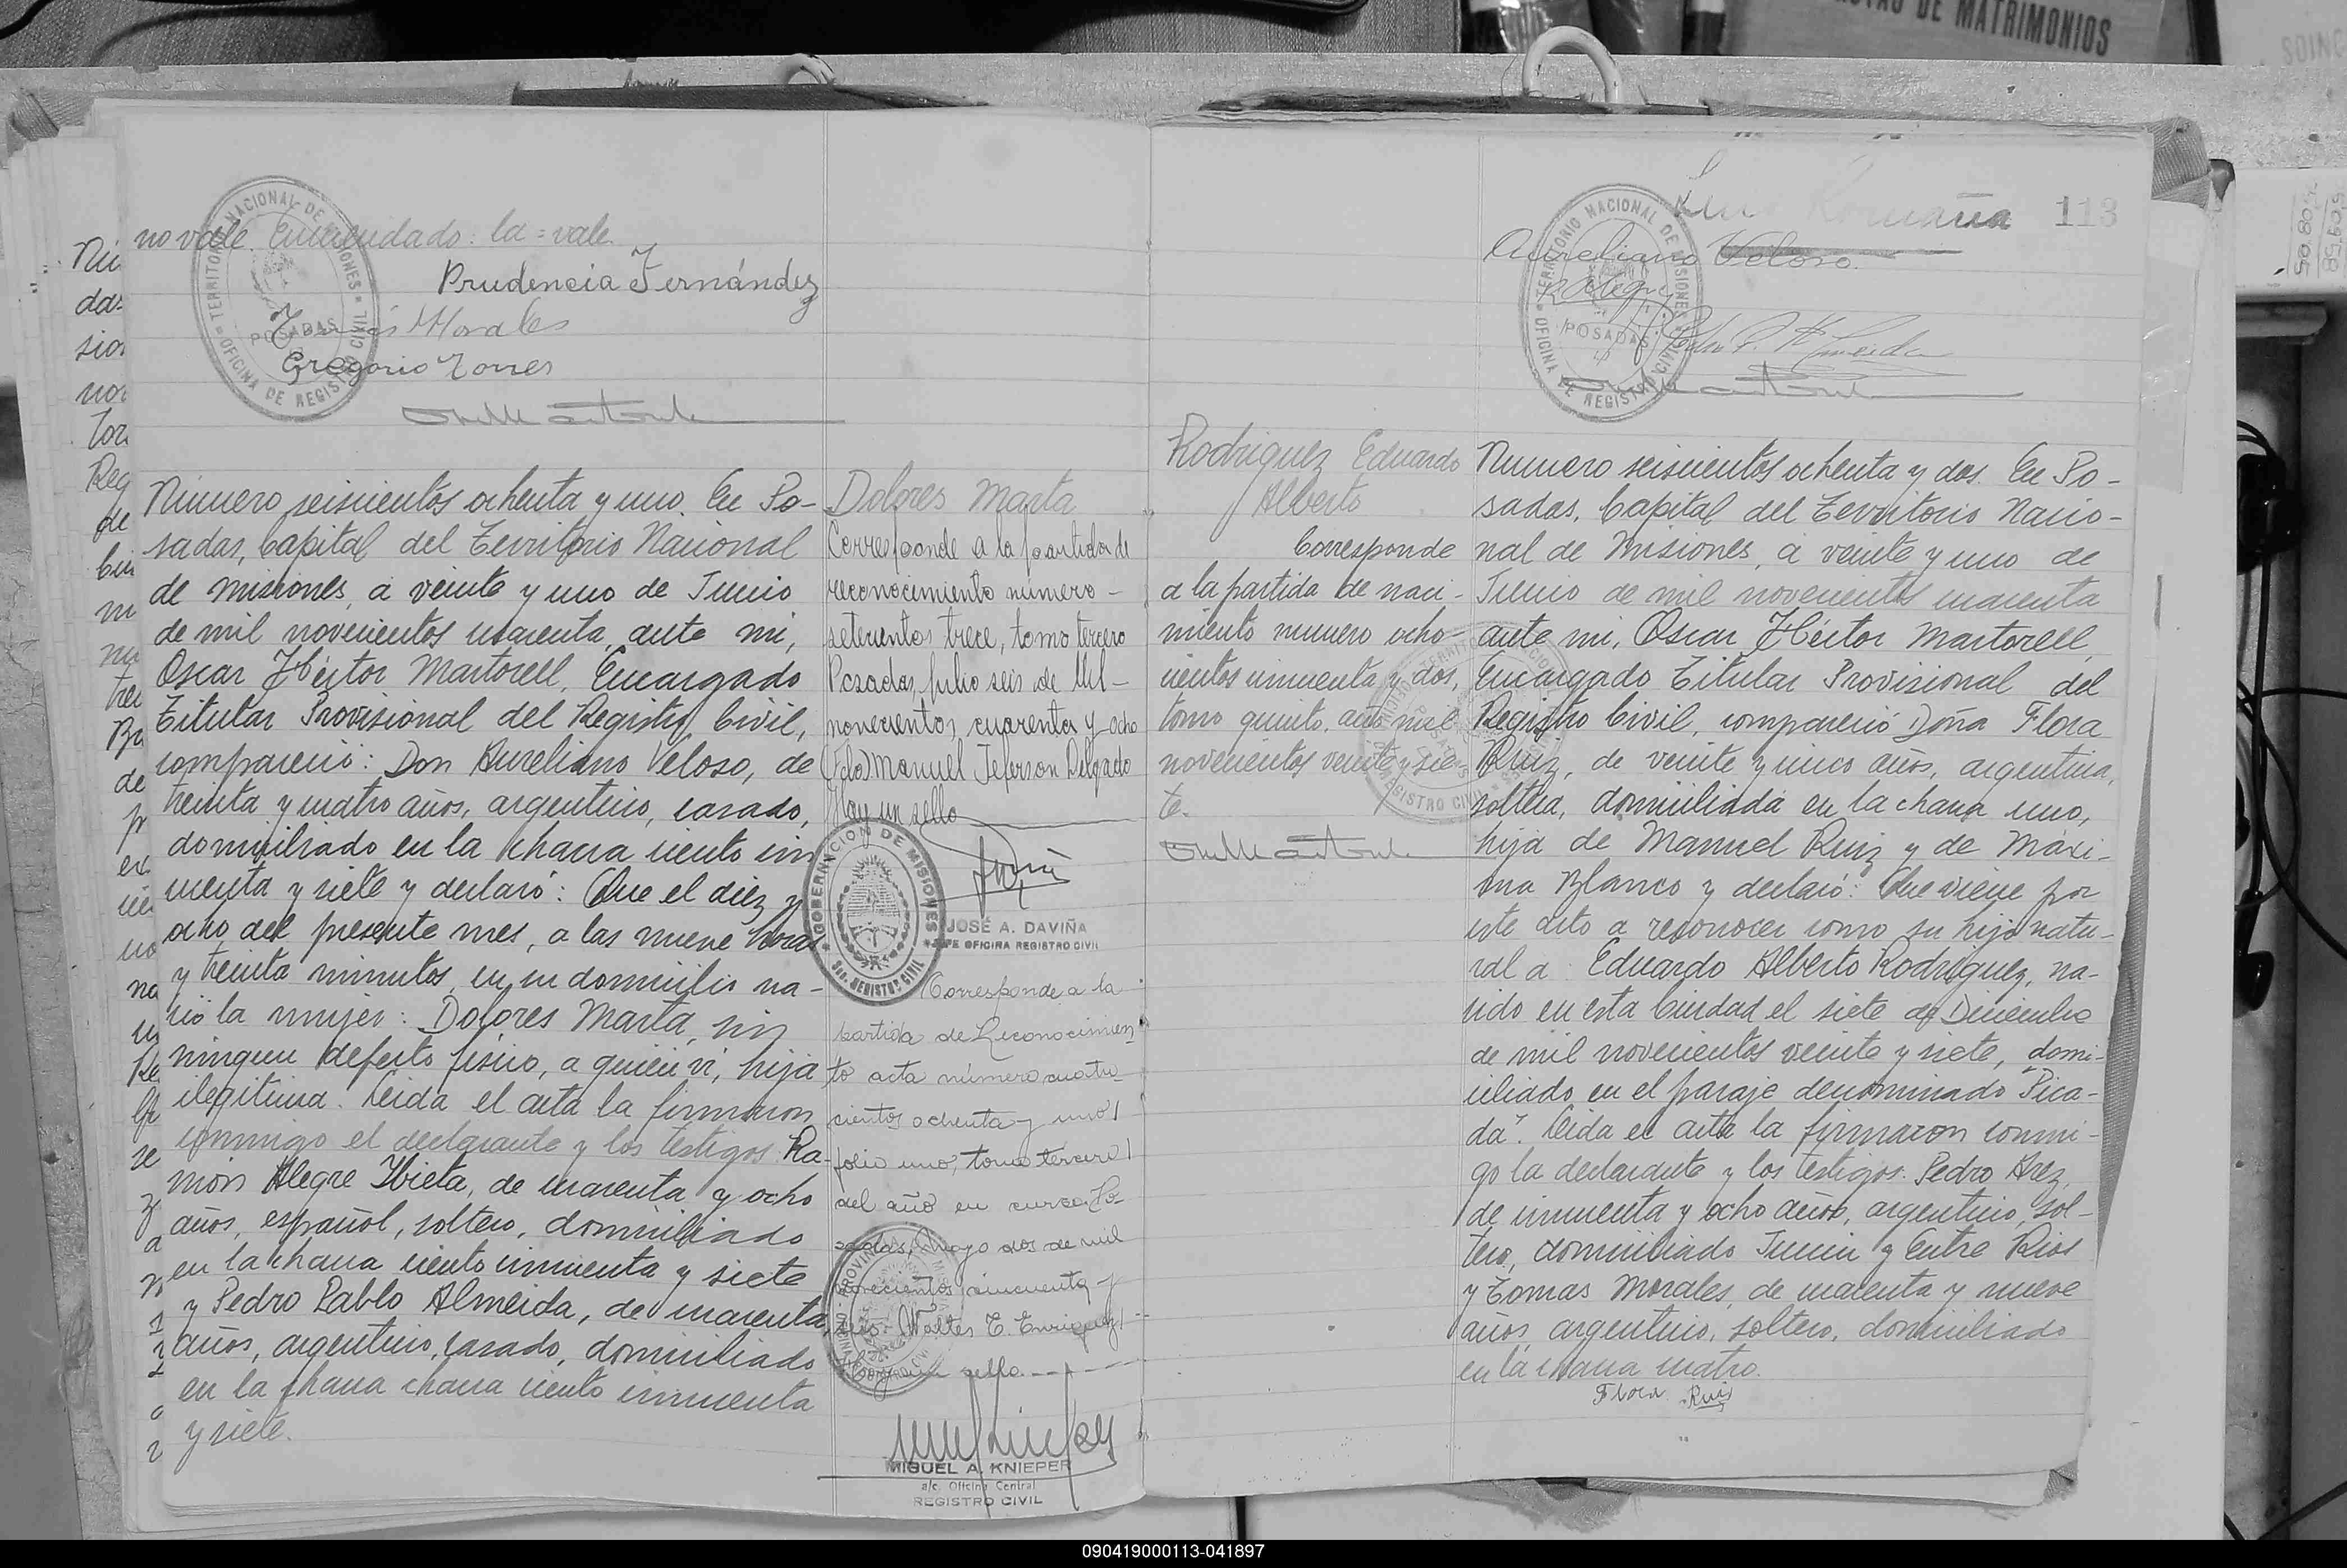 AS DE MATRIMONIOS
no vale. Enmendado: la = vale.
Prudencia Fernández
Tomás Morales
Gregorio Torres
TERRITORIO NACIONAL DE MISIONES
POSADAS
OFICINA DE REGISTRO CIVIL
Número seiscientos ochenta y uno. En Po-
sadas, Capital del Territorio Nacional
de Misiones, a veinte y uno de Junio
de mil novecientos cuarenta, ante mi,
Oscar Héctor Martorell, Encargado
Titular Provisional del Registro Civil,
compareció: Don Aureliano Veloso, de
treinta y cuatro años, argentino, casado,
domiciliado en la chacra ciento cin
cuenta y siete y declaró: Que el diez y
ocho del presente mes, a las nueve horas
y treinta minutos, en su domicilio na-
ció la mujer: Dolores Marta, sin
ningun defecto físico, a quien vi, hija
ilegitima. Leida el acta la firmaron
conmigo el declarante y los testigos: Ra-
món Alegre Ibieta, de cuarenta y ocho
años, español, soltero, domiciliado
en la chacra ciento cincuenta y siete
y Pedro Pablo Almeida, de cuarenta
años, argentino, casado, domiciliado
en la chacra chacra ciento cincuenta
y siete.
Dolores Marta
Corresponde a la partida de
reconocimiento número -
setecientos trece, tomo tercero
Posadas, julio seis de Mil -
novecientos cuarenta y ocho
(Fdo) Manuel Jeferson Delgado
Hay un sello
GOBERNACION DE MISIONES
Sec. REGISTRO CIVIL
JOSÉ A. DAVIÑA
JEFE OFICINA REGISTRO CIVIL
Corresponde a la
partida de Reconocimien
to acta número cuatro-
cientos ochenta y uno
folio uno, tomo tercero
del año en curso. Po-
sadas, Mayo dos de mil
novecientos cincuenta y
Walter E. Enriquez
Hay un sello
MIGUEL A. KNIEPER
a/c. Oficina Central
REGISTRO CIVIL
113
Aureliano Veloso.
R Alegre
Pedro P. Almeida
TERRITORIO NACIONAL DE MISIONES
POSADAS
OFICINA DE REGISTRO CIVIL
Rodriguez Eduardo
Alberto
Corresponde
a la partida de naci-
miento numero ocho-
cientos cincuenta y dos,
tomo quinto, año mil
novecientos veinte y sie-
te.
Numero seiscientos ochenta y dos. En Po-
sadas, Capital del Territorio Nacio-
nal de Misiones, a veinte y uno de
Junio de mil novecientos cuarenta
ante mi, Oscar Héctor Martorell,
Encargado Titular Provisional del
Registro Civil, compareció Doña Flora
Ruiz, de veinte y cinco años, argentina,
soltera, domiciliada en la chacra uno,
hija de Manuel Ruiz y de Maxi-
ma Blanco y declaró: Que viene por
este acto a reconocer como su hijo natu-
ral a: Eduardo Alberto Rodriguez, na-
cido en esta Ciudad el siete de Diciembre
de mil novecientos veinte y siete, domi-
ciliado en el paraje denominado "Pica-
da". Leida el acta la firmaron conmi-
go la declarante y los testigos: Pedro Arez,
de cincuenta y ocho años, argentino, sol-
tero, domiciliado Junin y Entre Rios
y Tomas Morales, de cuarenta y nueve
años, argentino, soltero, domiciliado
en la chacra cuatro.
Flora Ruiz
090419000113-041897